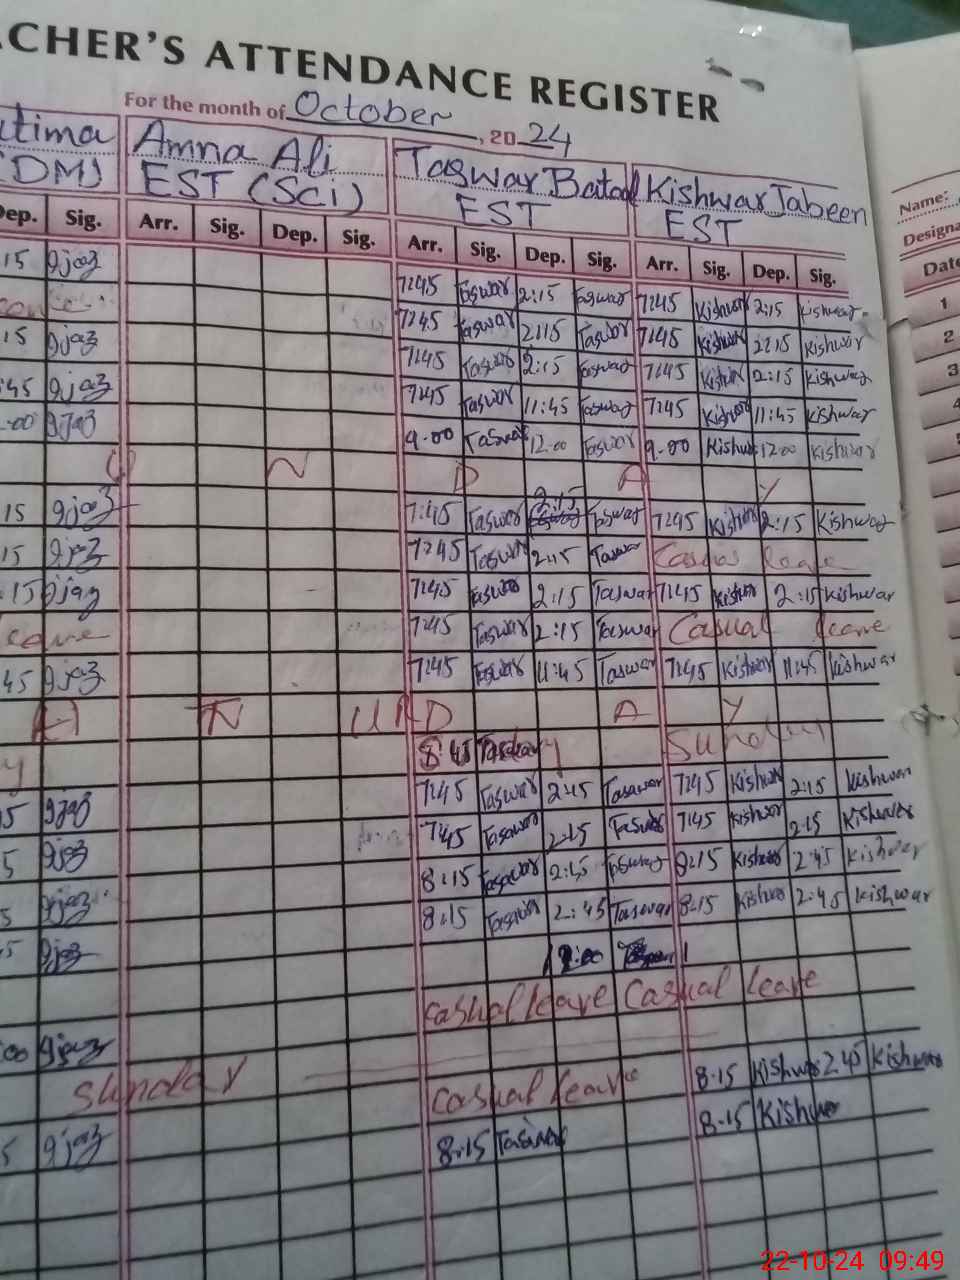 CHER'S ATTENDANCE REGISTER
For the month of October, 2024
tima Amna Ali Taswar Batool Kishwar Jabeen
(DM) EST (Sci) EST EST
Name:
Designa
Date
Dep. Sig. Arr. Sig. Dep. Sig. Arr. Sig. Dep. Sig. Arr. Sig. Dep. Sig.
15 Ijaz 7:45 Taswar 2:15 Taswar 7:45 Kishwar 2:15 Kishwar 1
7:45 Taswar 2:15 Taswar 7:45 Kishwar 2:15 Kishwar 2
15 Ijaz 7:45 Taswar 2:15 Taswar 7:45 Kishwar 2:15 Kishwar 3
:45 Ijaz 7:45 Taswar 11:45 Taswar 7:45 Kishwar 11:45 Kishwar 4
:00 Ijaz 9.00 Taswar 12.00 Taswar 9.00 Kishwar 12.00 Kishwar
U N D A Y
15 Ijaz 7:45 Taswar 2:15 Taswar 7:45 Kishwar 2:15 Kishwar
15 Ijaz 7:45 Taswar 2:15 Taswar Casual leave
15 Ijaz 7:45 Taswar 2:15 Taswar 7:45 Kishwar 2:15 Kishwar
leave 7:45 Taswar 2:15 Taswar Casual leave
45 Ijaz 7:45 Taswar 11:45 Taswar 7:45 Kishwar 11:45 Kishwar
U R D A Y
y 8:45 Sunday
5 Ijaz 7:45 Taswar 2:15 Taswar 7:45 Kishwar 2:15 Kishwar
5 Ijaz 7:45 Taswar 2:15 Taswar 7:45 Kishwar 2:15 Kishwar
Ijaz 8:15 Taswar 2:45 Taswar 8:15 Kishwar 2:45 Kishwar
5 Ijaz 8:15 Taswar 2:45 Taswar 8:15 Kishwar 2:45 Kishwar
5 Ijaz 12:00
casual leave Casual leave
:00 Ijaz
Sunday casual leave 8:15 Kishwar 2:45 Kishwar
5 Ijaz 8:15 Taswar 8:15 Kishwar
22-10-24 09:49